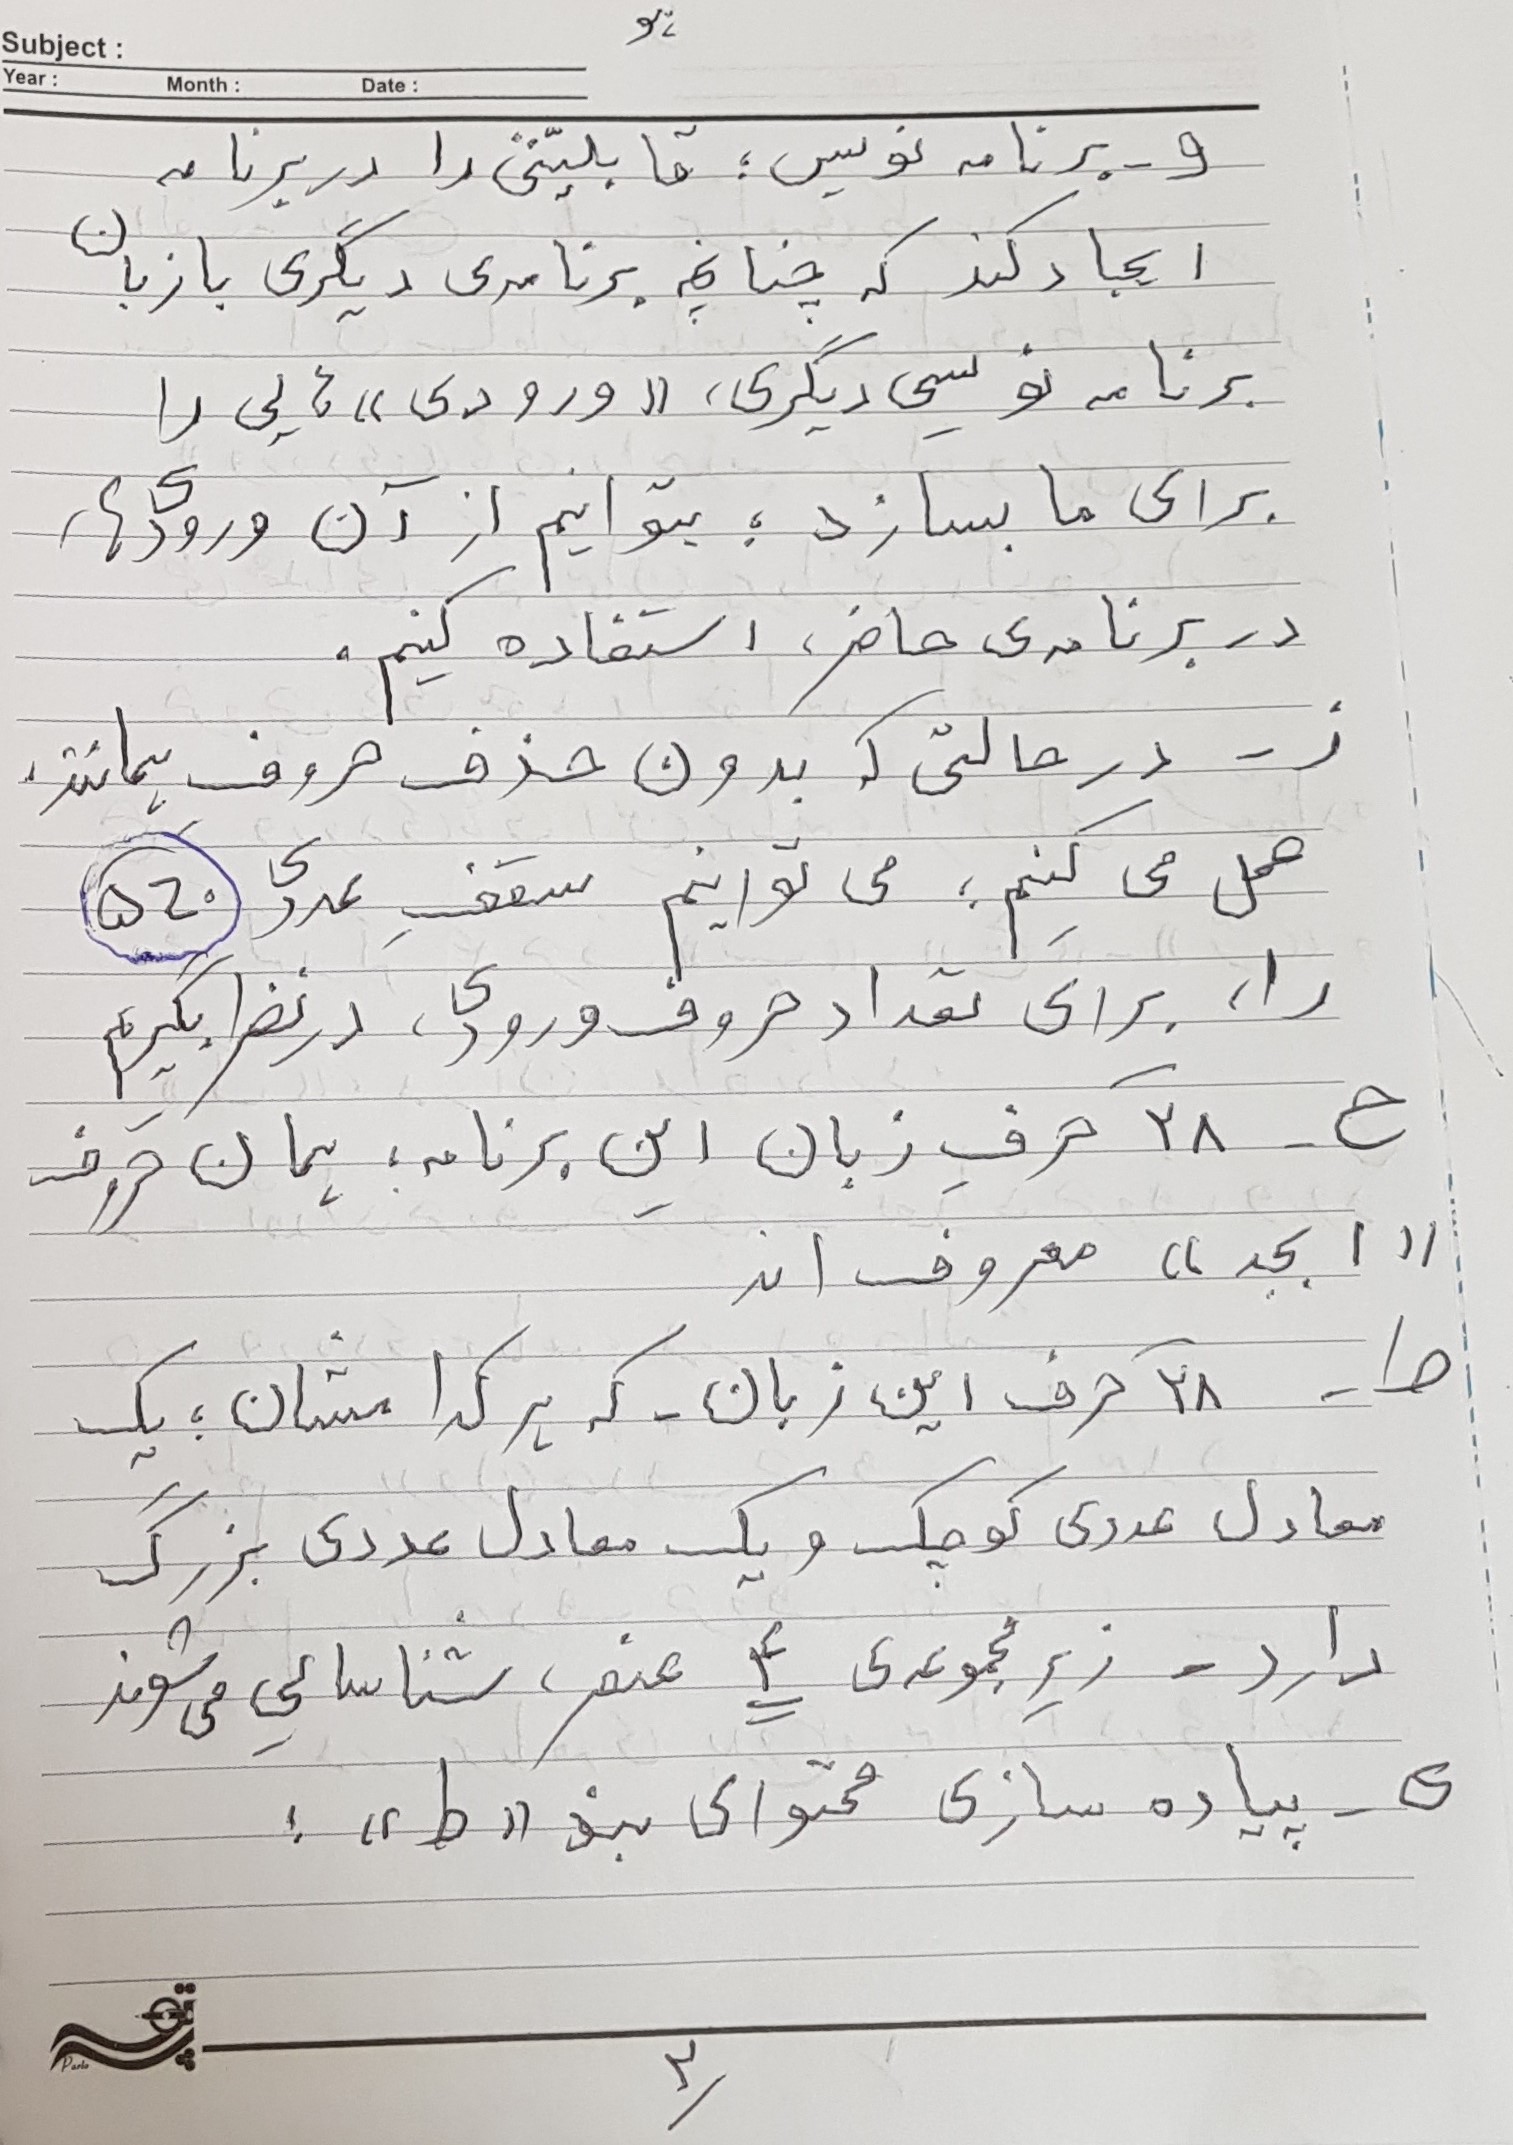 هو
Subject :
Year : Month : Date :
و - برنامه نویس؛ قابلیّتی را در برنامه
ایجاد کند که چنانچه برنامه‌ی دیگری با زبان
برنامه نویسی دیگری، «ورودی» هایی را
برای ما بسازد؛ بتوانیم از آن ورودی‌ها،
در برنامه‌ی حاضر، استفاده کنیم.
ز - در حالتی که بدون حذف حروف همانند،
عمل می کنیم؛ می توانیم سقفِ عددی ۵۲۰
را، برای تعداد حروف ورودی، در نظر بگیریم
ح - ۲۸ حرفِ زبان این برنامه؛ همان حروف
«ابجد» معروف اند
ط - ۲۸ حرف این زبان - که هر کدامشان؛ یک
معادل عددی کوچک و یک معادل عددی بزرگ
دارد - زیرِ مجموعه‌ی ۴ عنصر، شناسایی می شوند
ی - پیاده سازی محتوای بند «ط» :
Parlo
۲